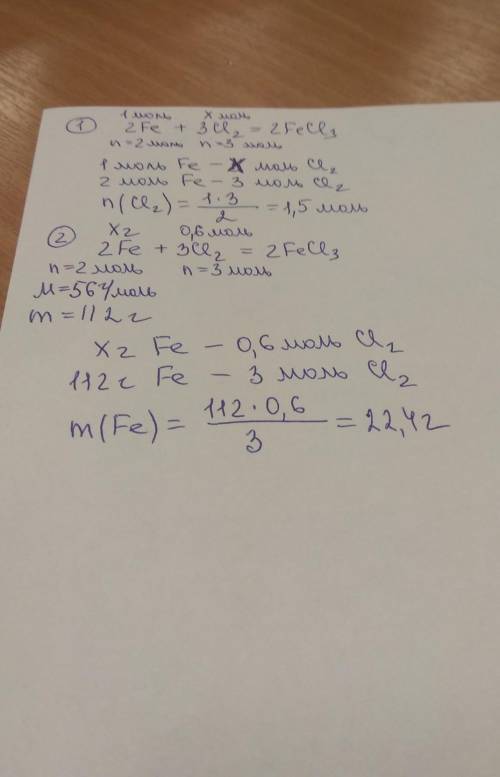 1 моль х моль
① 2Fe + 3Cl₂ = 2FeCl₃
n=2 моль n=3 моль
1 моль Fe – X моль Cl₂
2 моль Fe – 3 моль Cl₂
n(Cl₂) = 1·3/2 = 1,5 моль
② Xг 0,6 моль
2Fe + 3Cl₂ = 2FeCl₃
n=2 моль n=3 моль
M=56 г/моль
m=112 г
Xг Fe – 0,6 моль Cl₂
112 г Fe – 3 моль Cl₂
m(Fe) = 112·0,6/3 = 22,4 г